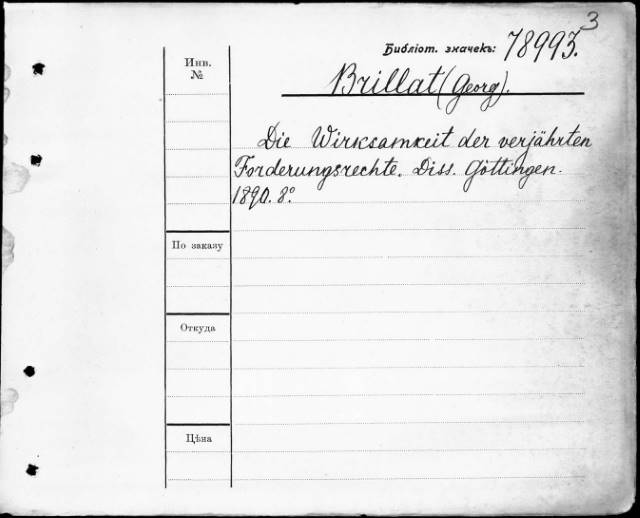 3
Библіот. значекъ: 78993.
Инв.
№
Brillat (Georg).
Die Wirksamkeit der verjährten
Forderungsrechte. Diss. Göttingen.
1890. 8°.
По заказу
Откуда
Цѣна